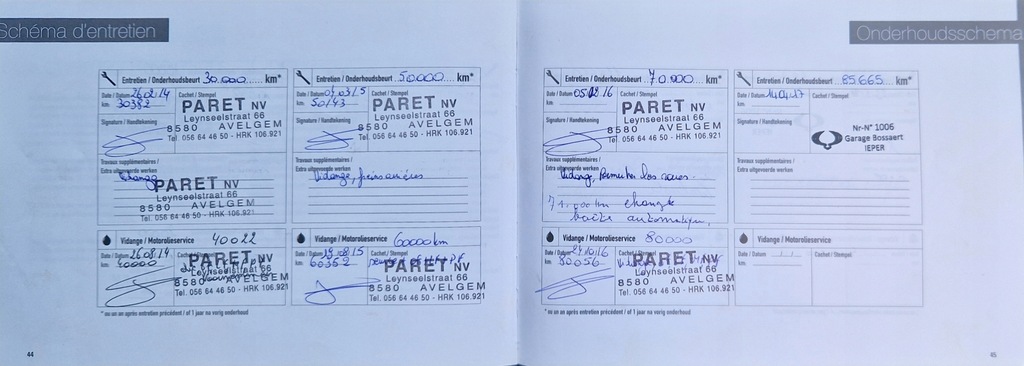 Schéma d'entretien
Onderhoudsschema
Entretien / Onderhoudsbeurt 30.000 .... km*
Date / Datum 26.02.14
Cachet / Stempel
km: 30382
PARET NV
Leynseelstraat 66
8580 AVELGEM
Tel. 056 64 46 50 - HRK 106.921
Signature / Handtekening
Travaux supplémentaires /
Extra uitgevoerde werken
PARET NV
Leynseelstraat 66
8580 AVELGEM
Tel. 056 64 46 50 - HRK 106.921
Entretien / Onderhoudsbeurt 50000 .... km*
Date / Datum
Cachet / Stempel
km: 50143
PARET NV
Leynseelstraat 66
8580 AVELGEM
Tel. 056 64 46 50 - HRK 106.921
Signature / Handtekening
Travaux supplémentaires /
Extra uitgevoerde werken
Vidange, freins arrières
Vidange / Motorolieservice 40022
Date / Datum 26.08.14
40000
PARET NV
Leynseelstraat 66
8580 AVELGEM
Tel. 056 64 46 50 - HRK 106.921
Vidange / Motorolieservice 60000km
Date / Datum 19.08.15
60352
PARET NV
Leynseelstraat 66
8580 AVELGEM
Tel. 056 64 46 50 - HRK 106.921
* ou un an après entretien précédent / of 1 jaar na vorig onderhoud
44
Entretien / Onderhoudsbeurt 70.000 .... km*
Date / Datum
Cachet / Stempel
km:
PARET NV
Leynseelstraat 66
8580 AVELGEM
Tel. 056 64 46 50 - HRK 106.921
Signature / Handtekening
Travaux supplémentaires /
Extra uitgevoerde werken
Vidange, Permuter les roues.
boîte automatique,
Entretien / Onderhoudsbeurt 85665 .... km*
Date / Datum 14.04.17
Cachet / Stempel
km:
Signature / Handtekening
Nr-N° 1006
Garage Bossaert
IEPER
Travaux supplémentaires /
Extra uitgevoerde werken
Vidange / Motorolieservice 80000
Date / Datum 24.10.16
80056
PARET NV
Leynseelstraat 66
8580 AVELGEM
Tel. 056 64 46 50 - HRK 106.921
Vidange / Motorolieservice
Date / Datum
Cachet / Stempel
km:
* ou un an après entretien précédent / of 1 jaar na vorig onderhoud
45